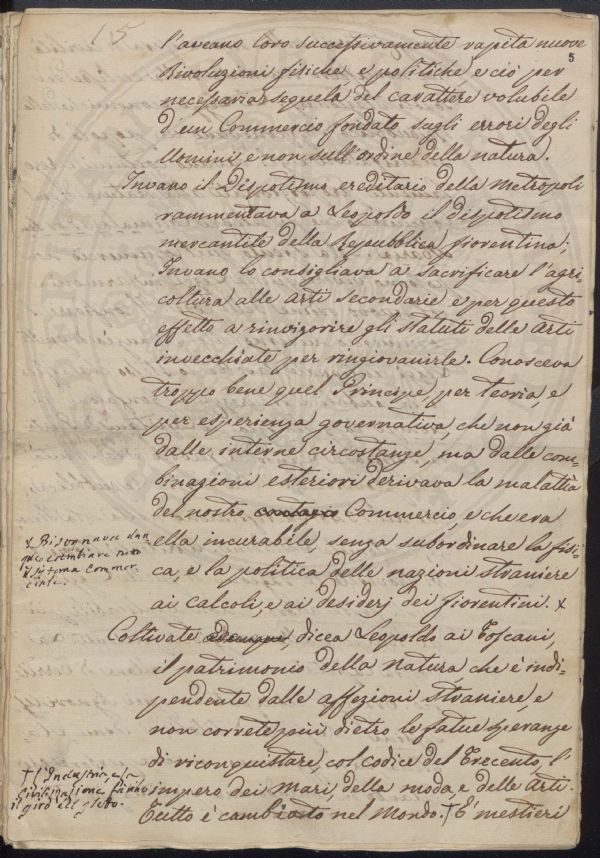 15
5
l'aveano loro successivamente rapita nuove
Rivoluzioni fisiche e politiche e ciò per
necessaria sequela del carattere volubile
d'un Commercio fondato sugli errori degli
Uomini, e non sull'ordine della natura.
Invano il Dispotismo ereditario della Metropoli
rammentava a Leopoldo il dispotismo
mercantile della Repubblica fiorentina;
Invano lo consigliava a sacrificare l'agri-
coltura alle arti secondarie e per questo
effetto a rinvigorire gli statuti delle Arti
invecchiate per ringiovanirle. Conosceva
troppo bene quel Principe, per teoria, e
per esperienza governativa, che non già
dalle interne circostanze, ma dalle com-
binazioni esteriori derivava la malattia
del nostro contagio Commercio, e che era
ella incurabile, senza subordinare la fisi-
ca, e la politica delle nazioni straniere
ai calcoli, e ai desiderj dei fiorentini. x
x Bisognava dun
que cambiare
il sistema commer-
ciale.
Coltivate adunque, dicea Leopoldo ai Toscani,
il patrimonio della natura che è indi-
pendente dalle affezioni straniere, e
non correte più dietro le fatue speranze
di riconquistare, col codice del Trecento, l'
impero dei Mari, della moda, e delle Arti.
Tutto è cambiato nel Mondo. † È mestieri
† l'Industria, e la
Civilizzazione fanno
il giro del globo.